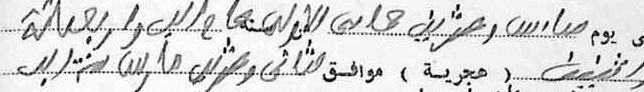 يوم خامس وعشرين جمادى الأولى عام ألف وأربعمائة
( هجرية ) موافق ثاني وعشرين مارس سنة ألف